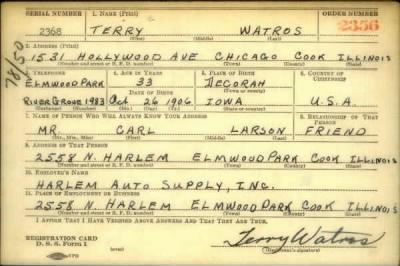 SERIAL NUMBER 1. NAME (Print) ORDER NUMBER
2368 TERRY WATROS 2356
(First) (Middle) (Last)
2. ADDRESS (Print)
1531 HOLLYWOOD AVE CHICAGO COOK ILLINOIS
(Number and street or R. F. D. number) (Town) (County) (State)
3. TELEPHONE 4. AGE IN YEARS 5. PLACE OF BIRTH 6. COUNTRY OF CITIZENSHIP
ELMWOOD PARK 33 DECORAH
DATE OF BIRTH (Town or county)
RIVER GROVE 1983 Oct 26 1906 IOWA U.S.A.
(Exchange) (Number) (Mo.) (Day) (Yr.) (State or country)
7. NAME OF PERSON WHO WILL ALWAYS KNOW YOUR ADDRESS RELATIONSHIP OF THAT PERSON
MR. CARL LARSON FRIEND
(Mr., Mrs., Miss) (First) (Middle) (Last)
8. ADDRESS OF THAT PERSON
2558 N. HARLEM ELMWOOD PARK COOK ILLINOIS
(Number and street or R. F. D. number) (Town) (County) (State)
EMPLOYER'S NAME
HARLEM AUTO SUPPLY, INC.
PLACE OF EMPLOYMENT OR BUSINESS
2558 N. HARLEM ELMWOOD PARK COOK ILLINOIS
(Number and street or R. F. D. number) (Town) (County) (State)
I AFFIRM THAT I HAVE VERIFIED ABOVE ANSWERS AND THAT THEY ARE TRUE.
REGISTRATION CARD
D. S. S. Form 1 Terry Watros
(Registrant's signature)
78/50